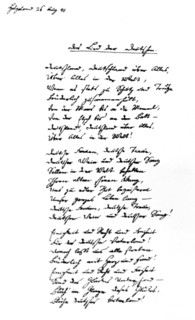 Helgoland 26 Aug. 41
Das Lied der Deutschen.
Deutschland, Deutschland über Alles,
Über Alles in der Welt,
Wenn es stets zu Schutz und Trutze
Brüderlich zusammenhält,
Von der Maas bis an die Memel,
Von der Etsch bis an den Belt –
Deutschland, Deutschland über Alles,
Über Alles in der Welt!
Deutsche Frauen, deutsche Treue,
Deutscher Wein und deutscher Sang
Sollen in der Welt behalten
Ihren alten schönen Klang,
Uns zu edler That begeistern
Unser ganzes Leben lang –
Deutsche Frauen, deutsche Treue,
Deutscher Wein und deutscher Sang!
Einigkeit und Recht und Freiheit
Für das deutsche Vaterland!
Danach lasst uns alle streben
Brüderlich mit Herz und Hand!
Einigkeit und Recht und Freiheit
Sind des Glückes Unterpfand –
Blüh im Glanze dieses Glückes,
Blühe deutsches Vaterland!